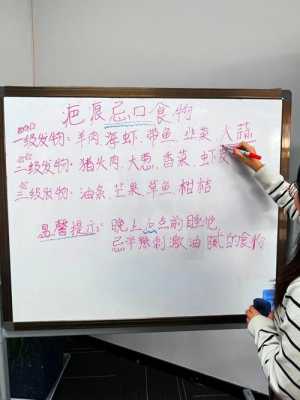 疤痕忌口食物
一级发物：羊肉 海虾 带鱼 韭菜 大蒜
二级发物：猪头肉 大葱 香菜 虾皮
三级发物：油条 芒果 草鱼 柑桔
温馨提示：晚上点前睡觉
忌辛辣刺激油腻的食物